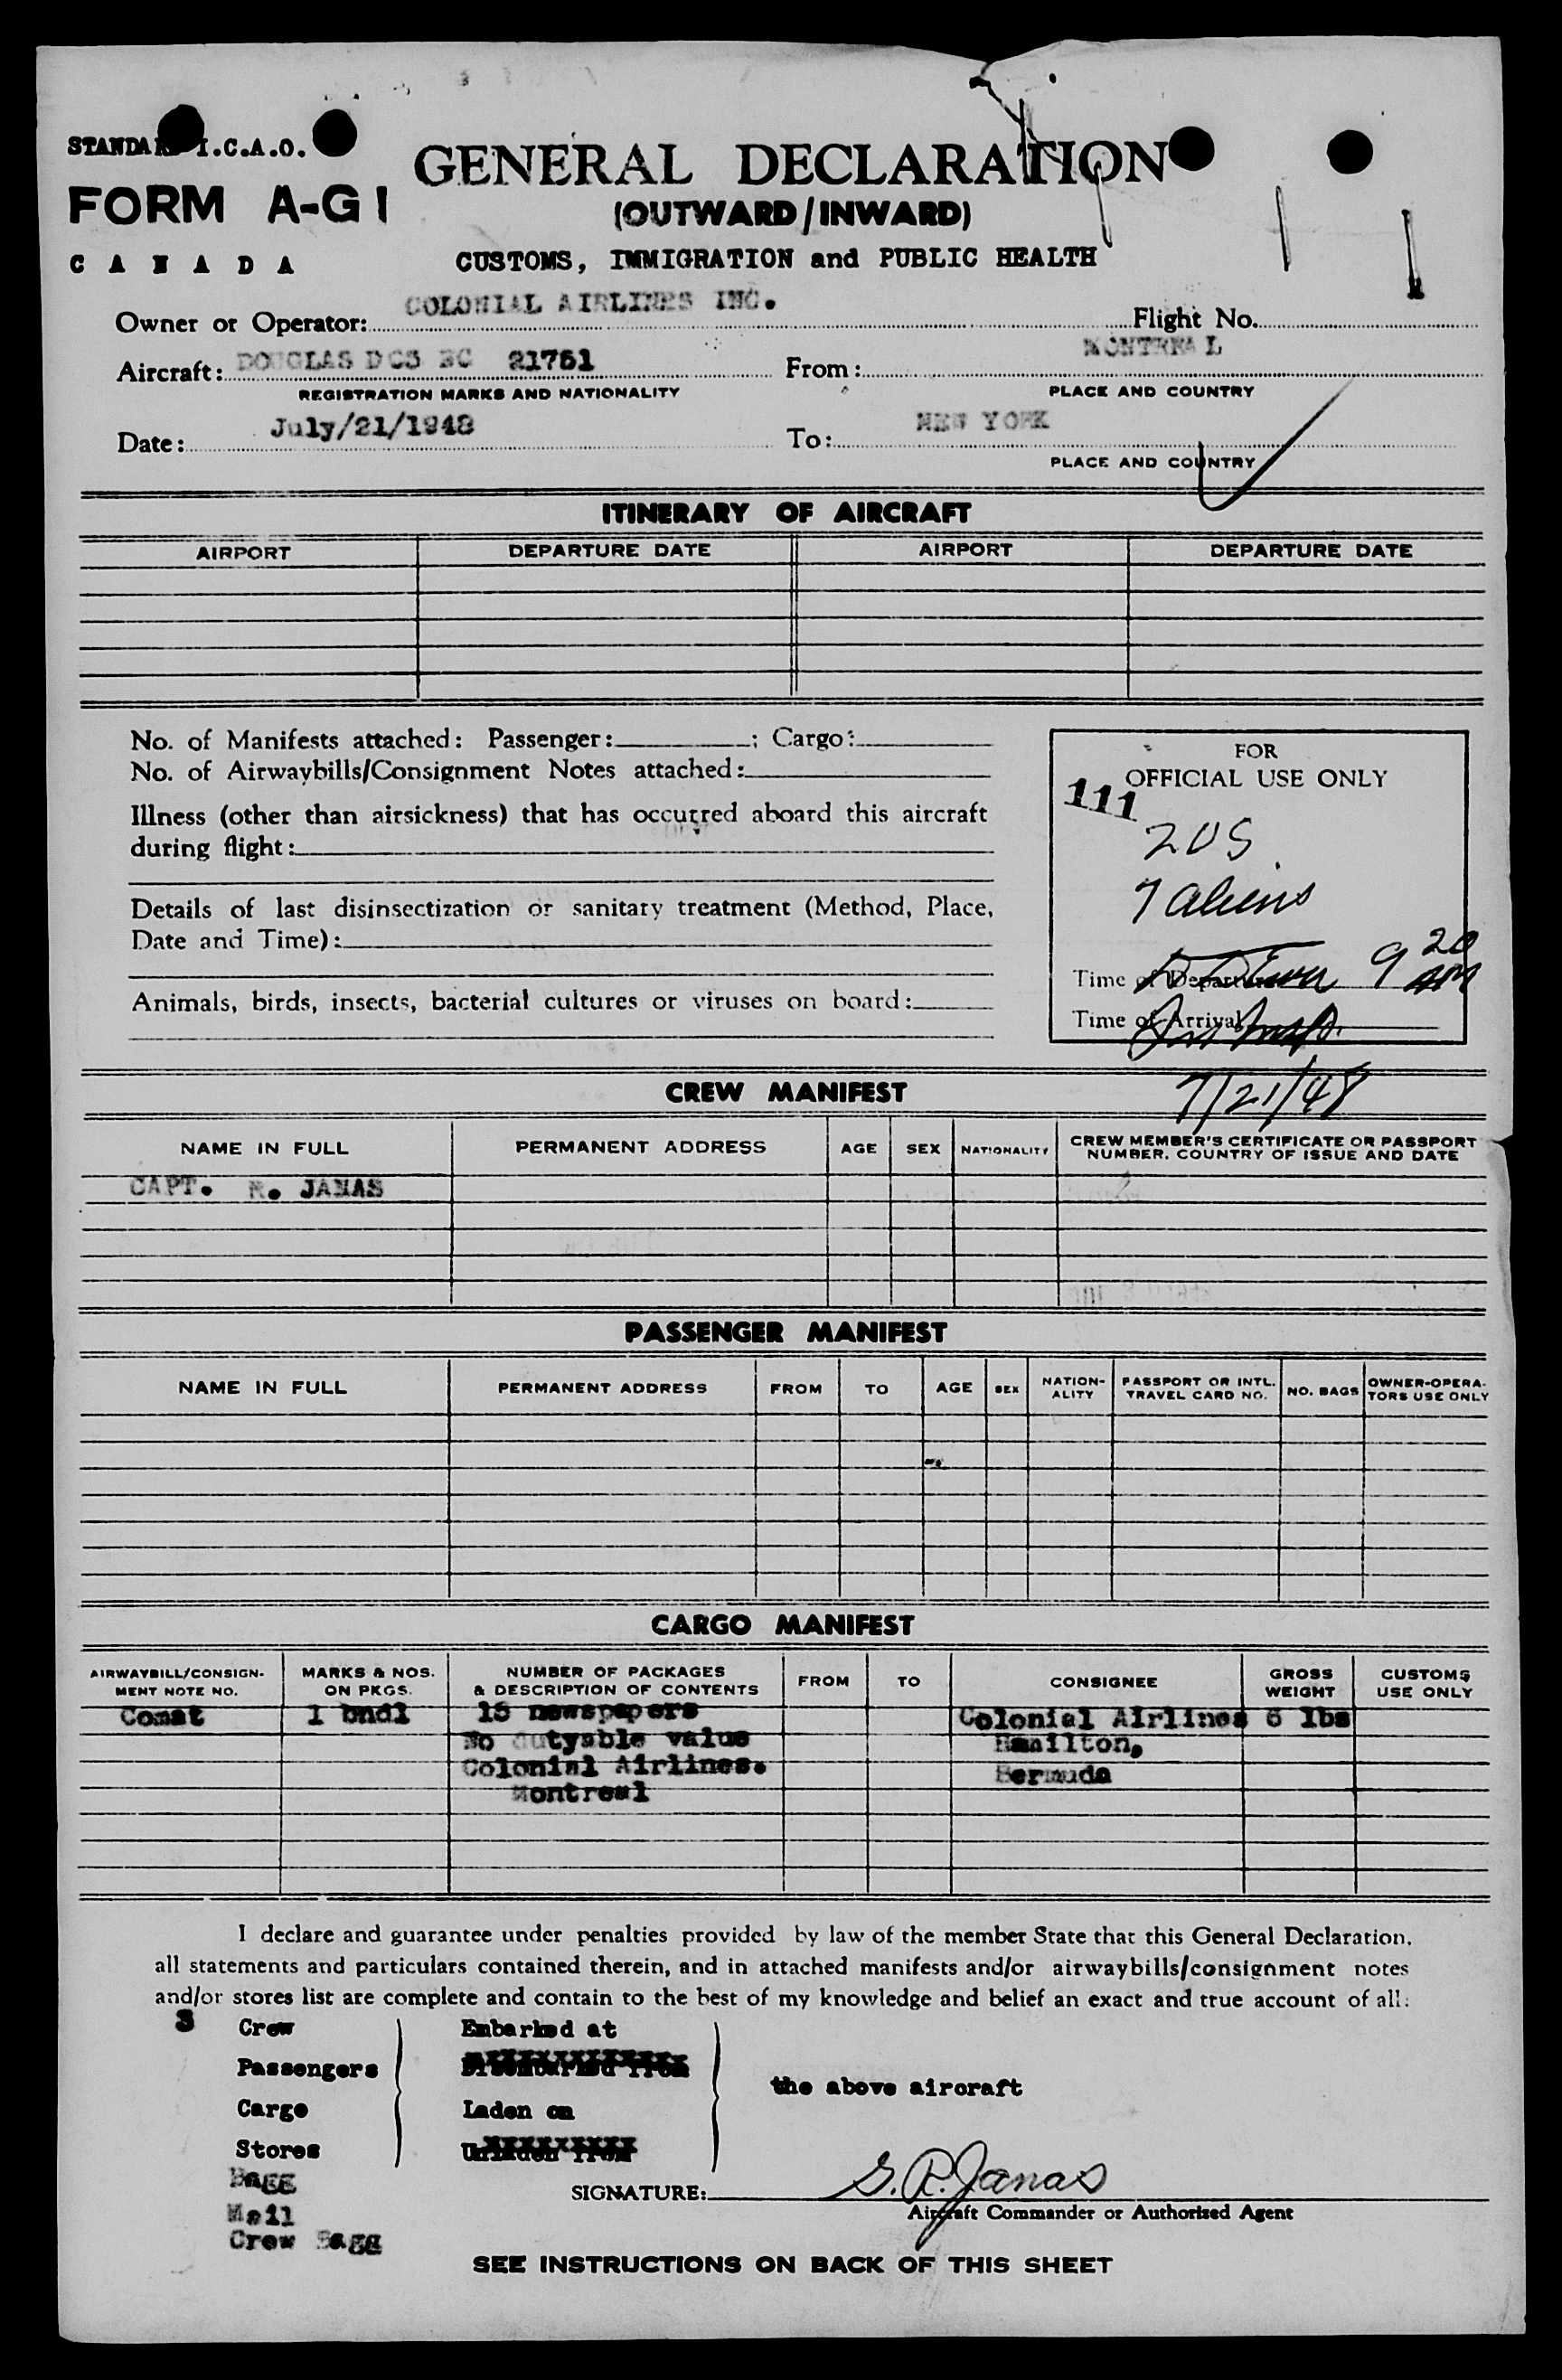 STANDARD I.C.A.O.
FORM A-G1
CANADA
GENERAL DECLARATION
(OUTWARD/INWARD)
CUSTOMS, IMMIGRATION and PUBLIC HEALTH
Owner or Operator: COLONIAL AIRLINES INC. Flight No.
Aircraft: DOUGLAS DC3 NC 21751 From: MONTREAL
REGISTRATION MARKS AND NATIONALITY PLACE AND COUNTRY
Date: July/21/1948 To: NEW YORK
PLACE AND COUNTRY
ITINERARY OF AIRCRAFT
AIRPORT DEPARTURE DATE AIRPORT DEPARTURE DATE
No. of Manifests attached: Passenger: ; Cargo:
No. of Airwaybills/Consignment Notes attached:
Illness (other than airsickness) that has occurred aboard this aircraft
during flight:
Details of last disinsectization or sanitary treatment (Method, Place,
Date and Time):
Animals, birds, insects, bacterial cultures or viruses on board:
FOR
OFFICIAL USE ONLY
111
20S
7 aliens
Time of Departure 9 20 AM
Time of Arrival
7/21/48
CREW MANIFEST
NAME IN FULL PERMANENT ADDRESS AGE SEX NATIONALITY CREW MEMBER'S CERTIFICATE OR PASSPORT
NUMBER, COUNTRY OF ISSUE AND DATE
CAPT. R. JANAS
PASSENGER MANIFEST
NAME IN FULL PERMANENT ADDRESS FROM TO AGE SEX NATION-
ALITY PASSPORT OR INTL.
TRAVEL CARD NO. NO. BAGS OWNER-OPERA-
TORS USE ONLY
CARGO MANIFEST
AIRWAYBILL/CONSIGN-
MENT NOTE NO. MARKS & NOS.
ON PKGS. NUMBER OF PACKAGES
& DESCRIPTION OF CONTENTS FROM TO CONSIGNEE GROSS
WEIGHT CUSTOMS
USE ONLY
Comat 1 bndl 15 newspapers Colonial Airlines 6 lbs
No dutyable value Hamilton,
Colonial Airlines. Bermuda
Montreal
I declare and guarantee under penalties provided by law of the member State that this General Declaration,
all statements and particulars contained therein, and in attached manifests and/or airwaybills/consignment notes
and/or stores list are complete and contain to the best of my knowledge and belief an exact and true account of all:
3 Crew Embarked at
Passengers Disembarked from
the above aircraft
Cargo Laden on
Stores Unladen from
Bagg
Mail
Crew Bagg
SIGNATURE: G. R. Janas
Aircraft Commander or Authorized Agent
SEE INSTRUCTIONS ON BACK OF THIS SHEET